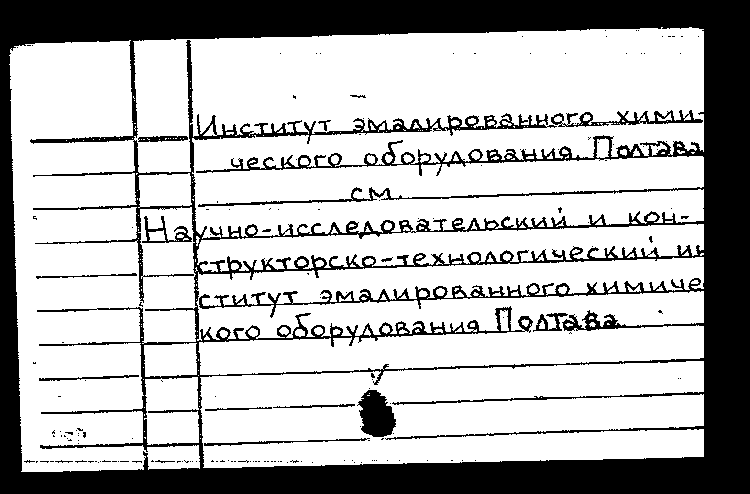 Институт эмалированного хими-
ческого оборудования. Полтава
см.
Научно-исследовательский и кон-
структорско-технологический ин
ститут эмалированного химиче
кого оборудования Полтава